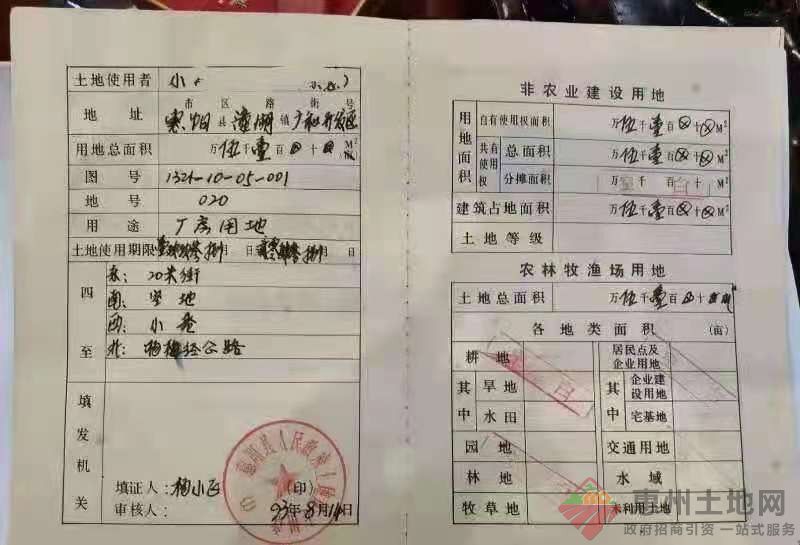 土地使用者 小
市 区 路 街 号
地 址 惠阳县潼湖镇广和开发区
用地总面积 万伍千壹百⊗十⊗M²
图 号 1321-10-05-001
地 号 020
用 途 厂房用地
土地使用期限 月 日 月 日
四至
东: 20米街
南: 空地
西: 小巷
北: 公路
填发机关
填证人: 杨小
审核人:
(印)
93年8月14日
非农业建设用地
用地面积
自有使用权面积 万伍千壹百⊗十⊗M²
共有使用权
总面积 万伍千壹百⊗十⊗M²
分摊面积 万 千 百 十 M²
建筑占地面积 万伍千壹百⊗十⊗M²
土地等级
农林牧渔场用地
土地总面积 万伍千壹百 十
各地类面积 (亩)
耕 地
居民点及企业用地
其中
旱地
水田
其中
企业建设用地
宅基地
园 地
交通用地
林 地
水 域
牧草地
未利用土地
惠州土地网
政府招商引资 一站式服务